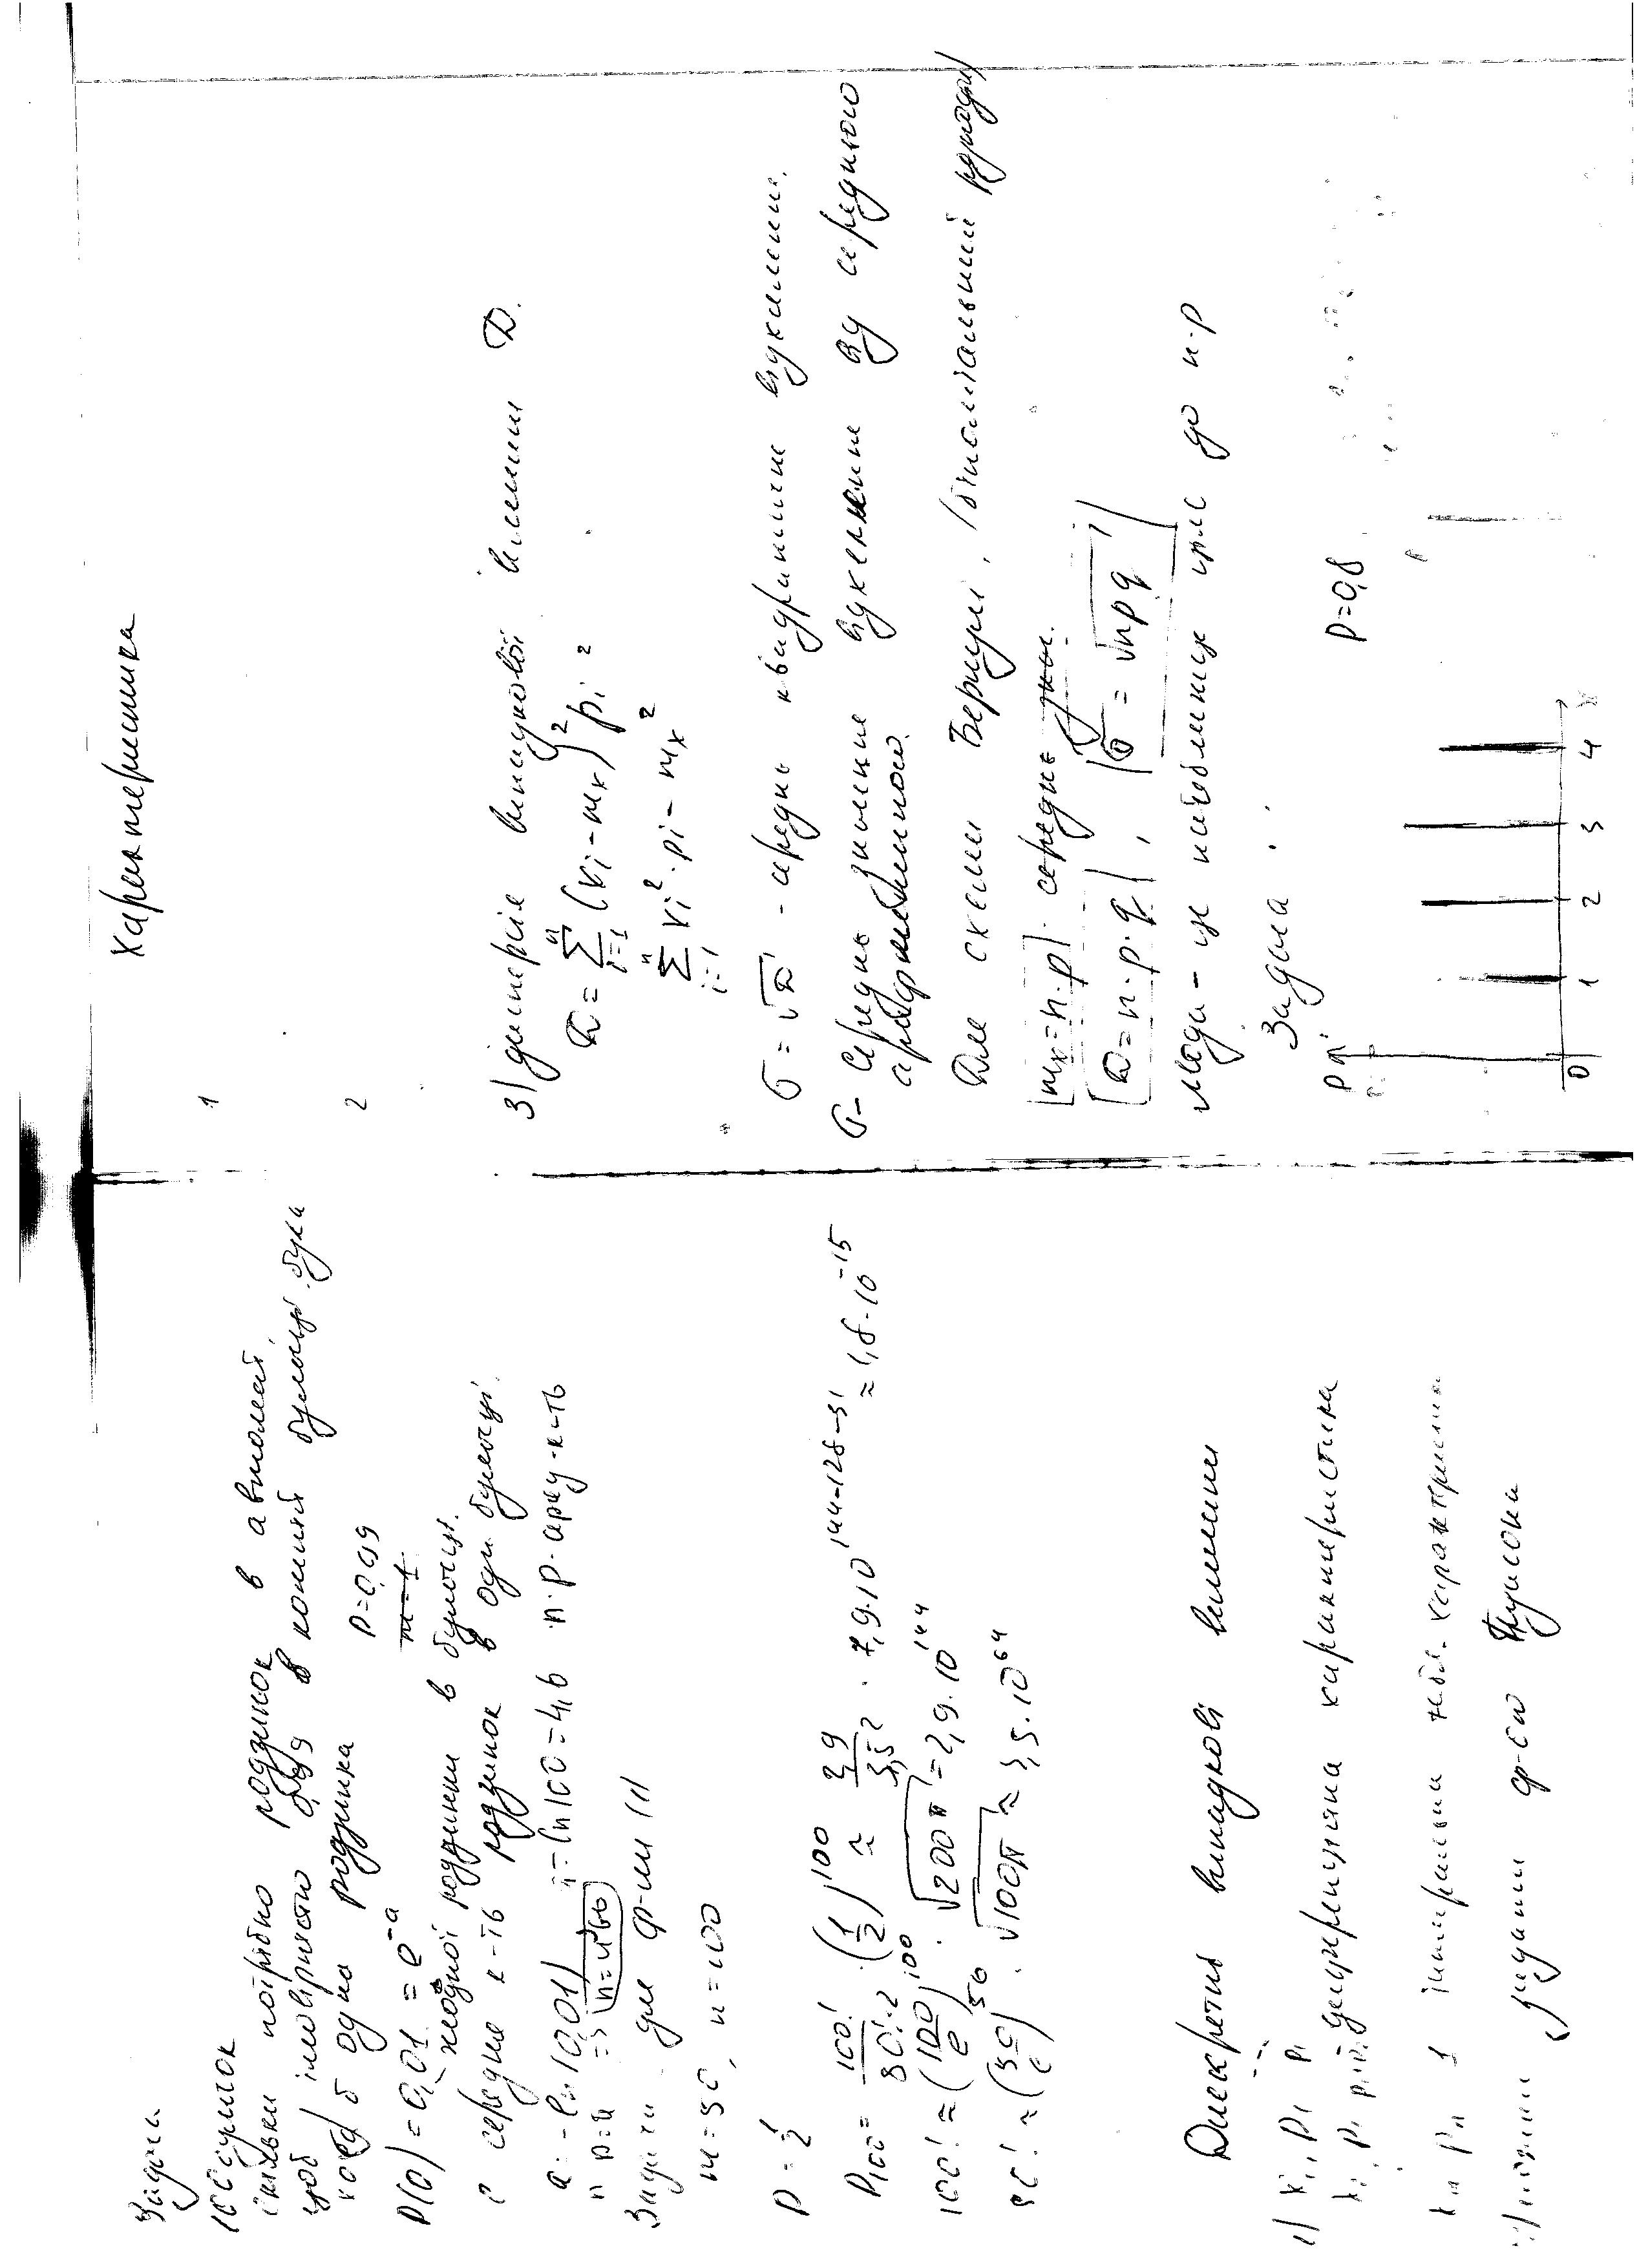 Задача
100 булочок
скільки потрібно родзинок в автомат,
щоб з імовірністю 0,99 в кожній булочці була
хоча б одна родзинка
P=0,99
m=1
P(0) = 0,01 = e^{-a}
жодної родзинки в булочці.
середня к-ть родзинок в одн булочці.
a = -ln(0,01), = ln100 = 4,6 n·p - серед к-ть
n p = a => n=460
Задача для ф-ли (1)
m=50, n=100
P = 1/2
P100 = 100!/50!·2 · (1/2)^{100} ≈ 2,9/3,5² · 7,9·10^{144-128-31} ≈ 1,8·10^{-15}
100! ≈ (100/e)^{100} · √200π = 2,9·10^{144}
50! ≈ (50/e)^{50} · √100π ≈ 3,5·10^{64}
Дискретні випадкові величини
1) x1, p1 p1
диференціальна характеристика
xn pn 1 інтегральна характеристика
задати ф-єю Пуассона
Характеристика
1
2
3) дисперсія випадкової величини D.
D = Σ_{i=1}^{n} (xi - mx)² pi =
Σ_{i=1}^{n} xi² · pi - mx²
σ = √D - середнє квадратичне відхилення.
σ - Середнє значення відхилення від середнього
арифметичного.
Для схеми Бернулі, (біноміальний розподіл)
mx = n·p середнє знач.
D = n·p·q , σ = √npq
Мода - це найближче ціле до n·p
Задача
P
P=0,8
0 1 2 3 4 x